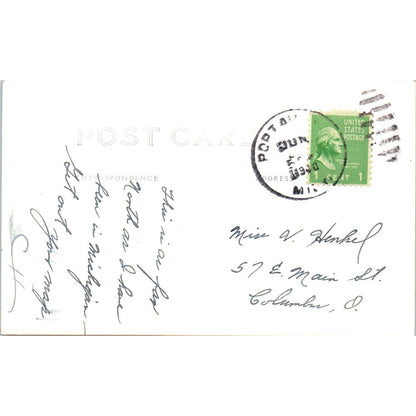 POST CARD
CORRESPONDENCE
ADDRESS
UNITED
STATES
POSTAGE
1 CENT 1
JUN
MICH
This is as far
North as I have
been in Michigan
Get out
your map
Miss V. Henkel
57 E. Main St.
Columbus, O.